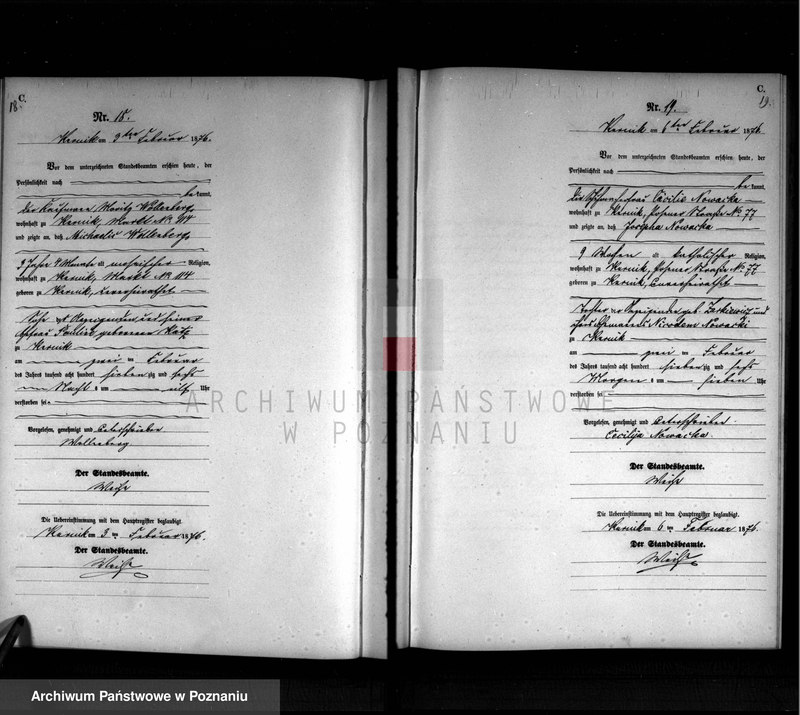 C.
18.
Nr. 18.
Kurnik am 3ten Februar 1876.
Vor dem unterzeichneten Standesbeamten erschien heute, der
Persönlichkeit nach
be kannt,
der Kaufmann Moritz Wollenberg
wohnhaft zu Kurnik, Markt No 114
und zeigte an, daß Michaelis Wollenberg,
3 Jahre 4 Monate alt, mosaischer Religion,
wohnhaft zu Kurnik, Markt No 114
geboren zu Kurnik, unverheirathet
Sohn des und seiner
Ehefrau geborenen Katz
zu Kurnik
am zwei ten Februar
des Jahres tausend acht hundert sieben zig und sechs
Nachts um elf Uhr
verstorben sei.
Vorgelesen, genehmigt und unterschrieben
Wollenberg
Der Standesbeamte.
Weiß
Die Uebereinstimmung mit dem Hauptregister beglaubigt.
Kurnik am 3 ten Februar 1876.
Der Standesbeamte.
Weiß
C.
19.
Nr. 19.
Kurnik am 6ten Februar 1876.
Vor dem unterzeichneten Standesbeamten erschien heute, der
Persönlichkeit nach
be kannt,
die Cäcilie Nowacka
wohnhaft zu Kurnik, Posener Straße No 77
und zeigte an, daß Josepha Nowacka
9 Wochen alt, katholischer Religion,
wohnhaft zu Kurnik, Posener Straße No 77
geboren zu Kurnik, unverheirathet
Tochter der geb. und
ihres Ehemannes Nicodem Nowacki
zu Kurnik
am ten Februar
des Jahres tausend acht hundert sieben zig und sechs
Morgens um sieben Uhr
verstorben sei.
Vorgelesen, genehmigt und unterschrieben
Cecilija Nowacka.
Der Standesbeamte.
Weiß
Die Uebereinstimmung mit dem Hauptregister beglaubigt.
Kurnik am 6 ten Februar 1876.
Der Standesbeamte.
Weiß
ARCHIWUM PAŃSTWOWE
W POZNANIU
Archiwum Państwowe w Poznaniu